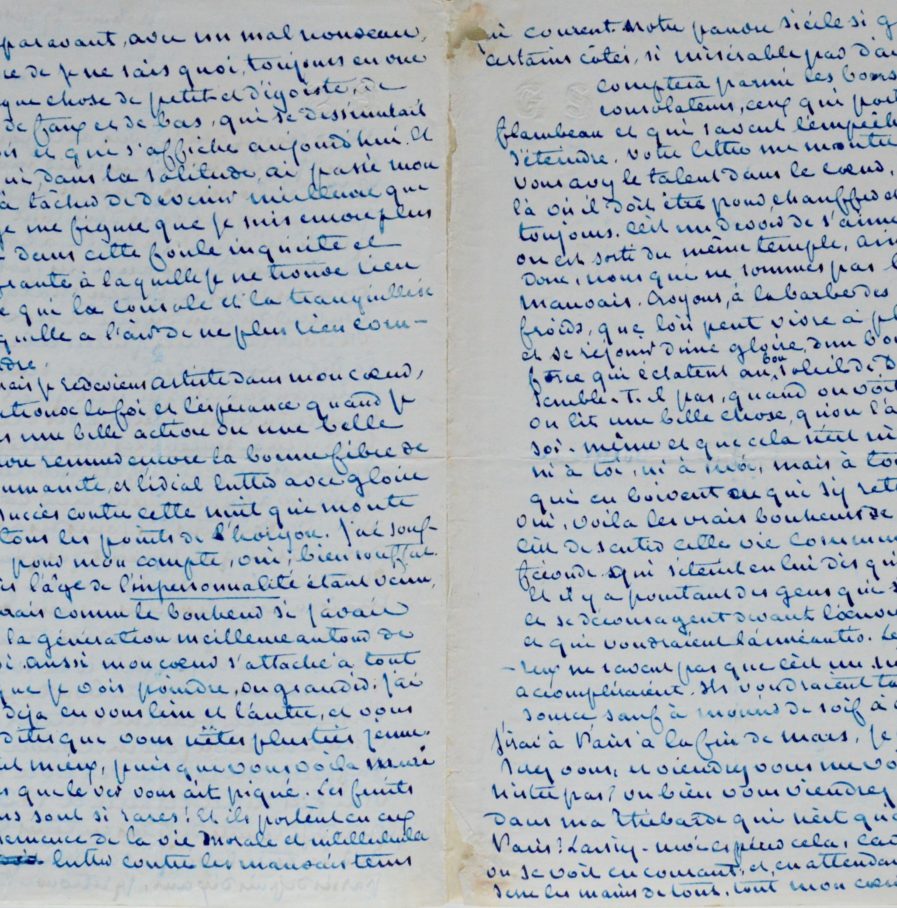 paravant, avec un mal nouveau,
de je ne sais quoi, toujours en vue
que chose de petit et d'égoïste, de
de faux et de bas, qui se dissimulait
et qui s'affiche aujourd'hui. Et
qui, dans la solitude, ai passé mon
à tâcher de devenir meilleure que
je me figure que je suis encore plus
dans cette foule inquiète et
à laquelle je ne trouve rien
qui la console et la tranquillise
qu'elle a l'air de ne plus rien com-
dre.
mais je redeviens artiste dans mon cœur,
la foi et l'espérance quand je
une belle action ou une belle
remue encore la bonne fibre de
humanité, et l'idéal lutter avec gloire
succès contre cette nuit qui monte
tous les points de l'horizon. J'ai souf-
pour mon compte, oui, bien souffert.
l'âge de l'impersonnalité étant venu,
comme le bonheur si j'avais
la génération meilleure autour de
aussi mon cœur s'attache à tout
que je vois poindre, ou grandir. J'ai
déjà en vous l'un et l'autre, et vous
dites que vous n'êtes plus très jeune.
mieux, puisque vous voilà mûri
que le ver vous ait piqué. Les fruits
sont si rares ! Et ils portent en eux
semence de la vie morale et intellectuelle
lutter contre les mauvais tems
qui courent. Notre pauvre siècle si g
certains côtés, si misérable par d'au
comptera parmi les bons
consolateurs, ceux qui port
flambeau et qui savent l'empêch
s'éteindre. Votre lettre me montre
vous avez le talent dans le cœur,
là où il doit être pour chauffer et
toujours. C'est un devoir de s'aimer
on est sorti du même temple, aim
donc, nous qui ne sommes pas l
mauvais. Croyons, à la barbe des
froids, que l'on peut vivre à pl
et se réjouir d'une gloire, d'un bo
force qui éclatent au bon soleil de D
semble-t-il pas, quand on voit
on lit une belle chose, qu'on l'a
soi-même et que cela n'est ni
ni à toi, ni à moi, mais à tou
qui en boivent ou qui s'y retr
Oui, voilà les vrais bonheurs de
c'est de sentir cette vie commu
féconde qui s'éteint en lui dès qu'i
Et il y a pourtant des gens qui s
et se découragent devant l'œuvre
et qui voudraient l'anéantir. Le
ne savent pas que c'est un su
accompliraient. Ils voudraient ta
source sauf à mourir de soif à c
J'irai à Paris à la fin de mars, je
vous, et viendrez vous me vo
n'est-ce pas ? ou bien vous viendrez
dans ma thébaïde qui n'est qu
Paris ? Laissez-moi espérer cela, car
on se voit en courant, et, en attendan
serre les mains de tout, tout mon cœur